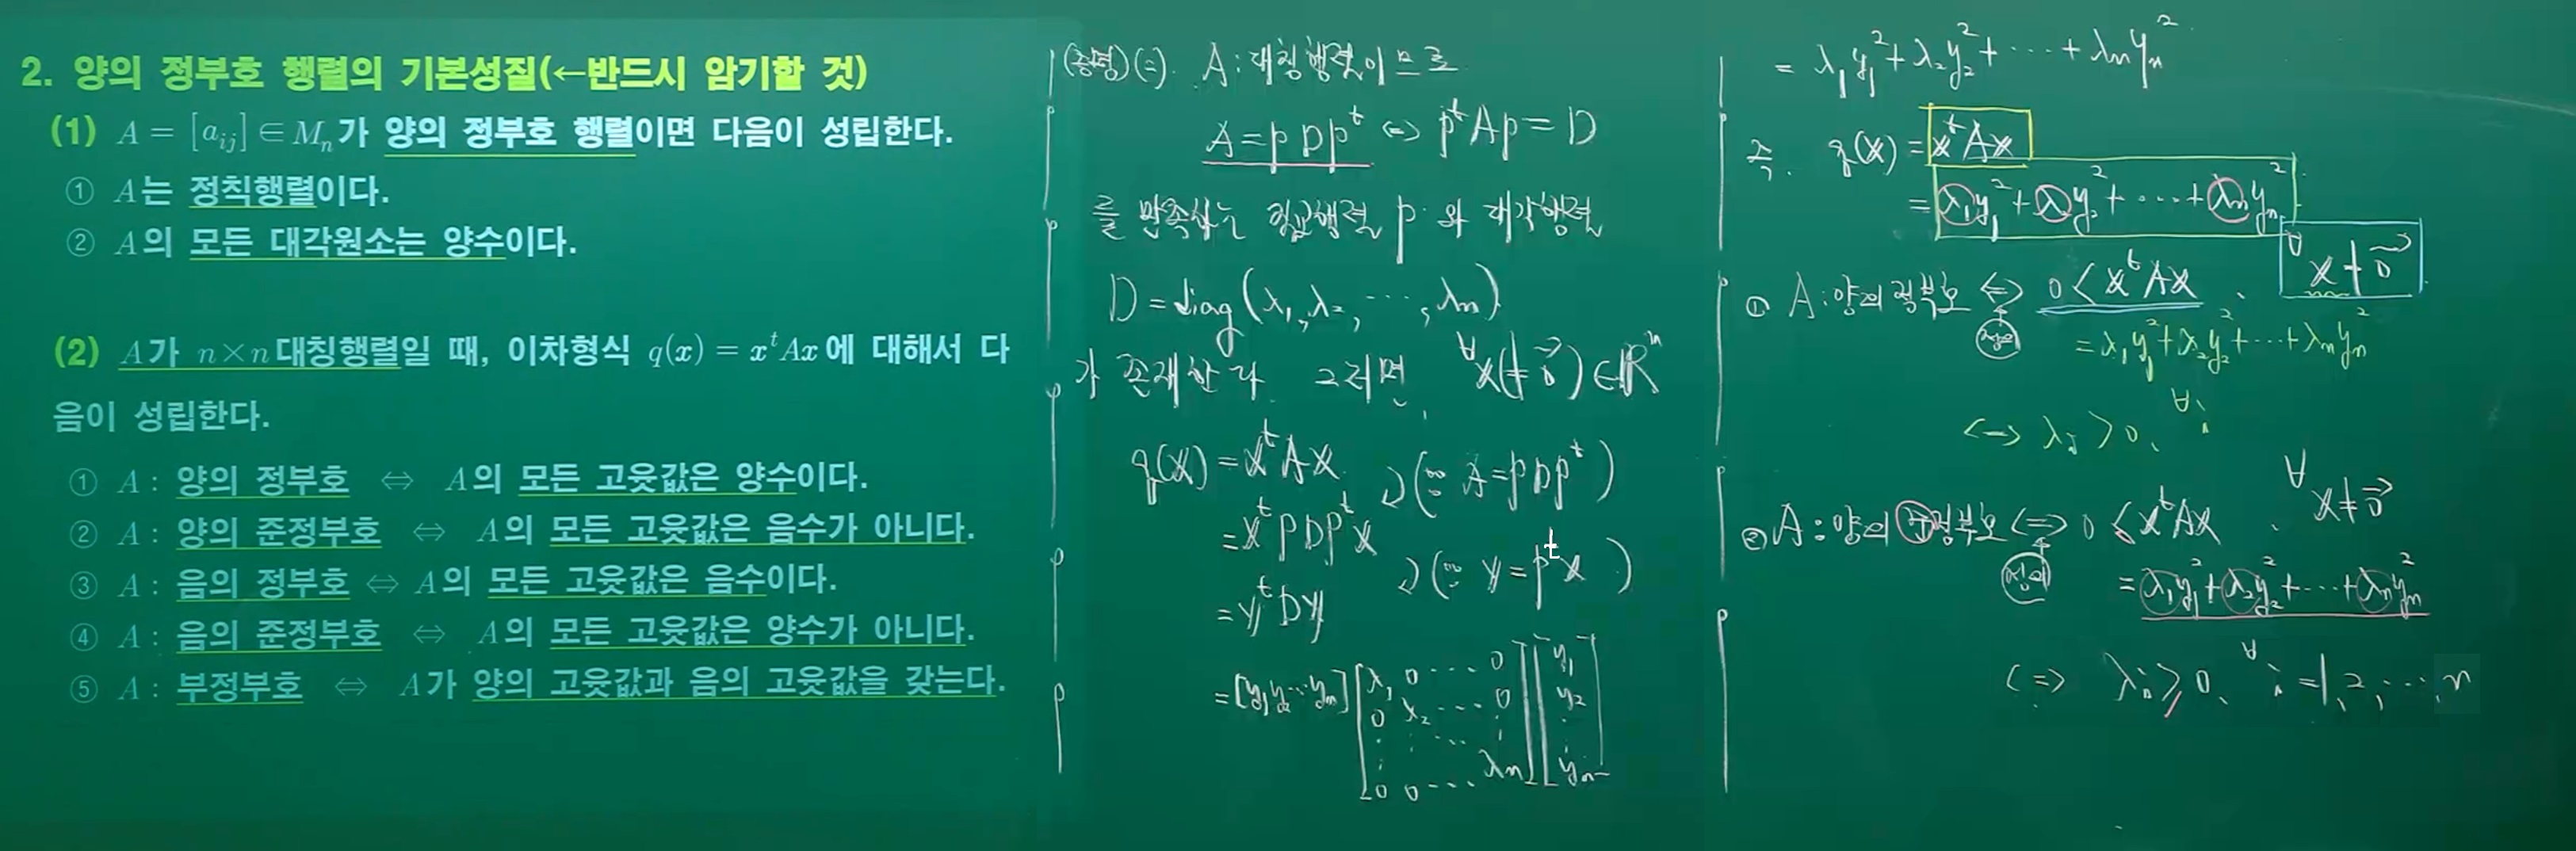 2. 양의 정부호 행렬의 기본성질(←반드시 암기할 것)
(1) A = [a_{ij}] ∈ M_n가 양의 정부호 행렬이면 다음이 성립한다.
① A는 정칙행렬이다.
② A의 모든 대각원소는 양수이다.
(2) A가 n×n대칭행렬일 때, 이차형식 q(x) = x^t Ax에 대해서 다
음이 성립한다.
① A : 양의 정부호 ⇔ A의 모든 고윳값은 양수이다.
② A : 양의 준정부호 ⇔ A의 모든 고윳값은 음수가 아니다.
③ A : 음의 정부호 ⇔ A의 모든 고윳값은 음수이다.
④ A : 음의 준정부호 ⇔ A의 모든 고윳값은 양수가 아니다.
⑤ A : 부정부호 ⇔ A가 양의 고윳값과 음의 고윳값을 갖는다.
(증명) A : 대칭행렬이므로
A = PDP^t ⇔ P^t AP = D
를 만족하는 직교행렬 P와 대각행렬
D = diag(λ₁, λ₂, ⋯, λn)
가 존재한다. 그러면, ∀x(≠0⃗) ∈ ℝⁿ
q(x) = x^t Ax
(∵ A = PDP^t)
= x^t PDP^t x
(∵ y = P^t x)
= y^t Dy
= [y₁ y₂ ⋯ yn] [λ₁ 0 ⋯ 0 [y₁
0 λ₂ ⋯ 0 y₂
⋮ ⋮ ⋯ ⋮ ⋮
0 0 ⋯ λn] yn]
= λ₁y₁² + λ₂y₂² + ⋯ + λn yn²
즉, q(x) = x^t Ax
= λ₁y₁² + λ₂y₂² + ⋯ + λn yn²
① A : 양의 정부호 ⇔ 0 < x^t Ax, ∀x ≠ 0⃗
정의
= λ₁y₁² + λ₂y₂² + ⋯ + λn yn²
⇔ λi > 0, ∀i
② A : 양의 준정부호 ⇔ 0 ≤ x^t Ax, ∀x ≠ 0⃗
정의
= λ₁y₁² + λ₂y₂² + ⋯ + λn yn²
⇔ λi ≥ 0, ∀i = 1, 2, ⋯, n